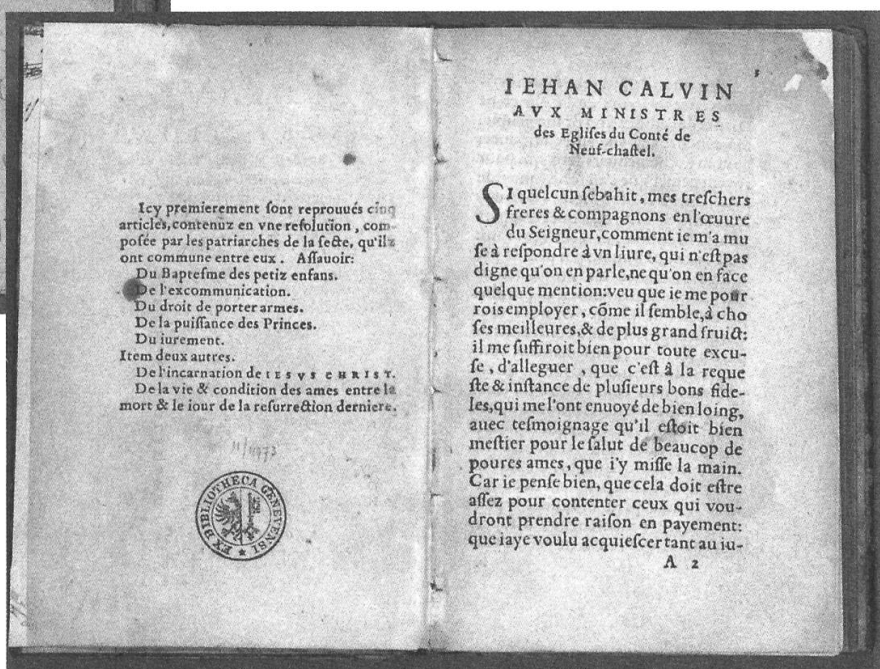 Icy premierement ſont reprouués cinq
articles, contenuz en vne reſolution, com-
poſée par les patriarches de la ſecte, qu'ilz
ont commune entre eux. Aſſauoir:
Du Bapteſme des petiz enfans.
De l'excommunication.
Du droit de porter armes.
De la puiſſance des Princes.
Du iurement.
Item deux autres.
De l'incarnation de IESVS CHRIST.
De la vie & condition des ames entre la
mort & le iour de la reſurrection derniere.
EX BIBLIOTHECA GENEVENSI
IEHAN CALVIN
AVX MINISTRES
des Egliſes du Conté de
Neuf-chaſtel.
SI quelcun ſebahit, mes treſchers
freres & compagnons en l'œuure
du Seigneur, comment ie m'a mu
ſe à reſpondre à vn liure, qui n'eſt pas
digne qu'on en parle, ne qu'on en face
quelque mention: veu que ie me pour
rois employer, cõme il ſemble, à cho
ſes meilleures, & de plus grand fruict:
il me ſuffiroit bien pour toute excu-
ſe, d'alleguer, que c'eſt à la reque
ſte & inſtance de pluſieurs bons fide-
les, qui me l'ont enuoyé de bien loing,
auec teſmoignage qu'il eſtoit bien
meſtier pour le ſalut de beaucop de
poures ames, que i'y miſſe la main.
Car ie penſe bien, que cela doit eſtre
aſſez pour contenter ceux qui vou-
dront prendre raiſon en payement:
que iaye voulu acquieſcer tant au iu-
A 2